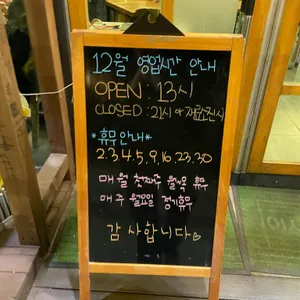 12월 영업시간 안내
OPEN : 13시
CLOSED : 21시 or 재료소진시
*휴무안내*
2.3.4.5.9.16.23.30
매월 첫째주 월~목 휴무
매주 월요일 정기휴무
감사합니다♡